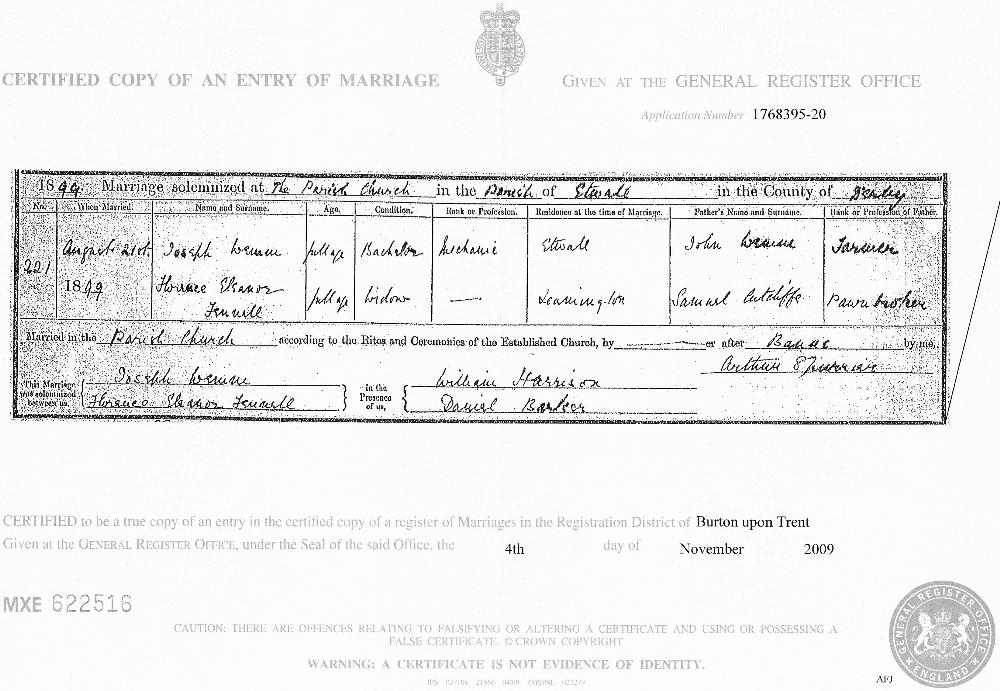 CERTIFIED COPY OF AN ENTRY OF MARRIAGE
GIVEN AT THE GENERAL REGISTER OFFICE
Application Number 1768395-20
1899. Marriage solemnized at The Parish Church in the Parish of Etwall in the County of Derby
No. When Married. Name and Surname. Age. Condition. Rank or Profession. Residence at the time of Marriage. Father's Name and Surname. Rank or Profession of Father.
221 August 21st 1899
Joseph full age Bachelor Mechanic Etwall John Farmer
Florence Eleanor Fennell full age Widow — Leamington Samuel Cutcliffe Pawnbroker
Married in the Parish Church according to the Rites and Ceremonies of the Established Church, by — or after Banns by me,
Arthur
This Marriage was solemnized between us, Joseph
Florence Eleanor Fennell
in the Presence of us, William Harrison
Daniel Barker
CERTIFIED to be a true copy of an entry in the certified copy of a register of Marriages in the Registration District of Burton upon Trent
Given at the GENERAL REGISTER OFFICE, under the Seal of the said Office, the 4th day of November 2009
MXE 622516
CAUTION: THERE ARE OFFENCES RELATING TO FALSIFYING OR ALTERING A CERTIFICATE AND USING OR POSSESSING A
FALSE CERTIFICATE. © CROWN COPYRIGHT
WARNING: A CERTIFICATE IS NOT EVIDENCE OF IDENTITY.
GENERAL REGISTER OFFICE
ENGLAND
AFJ